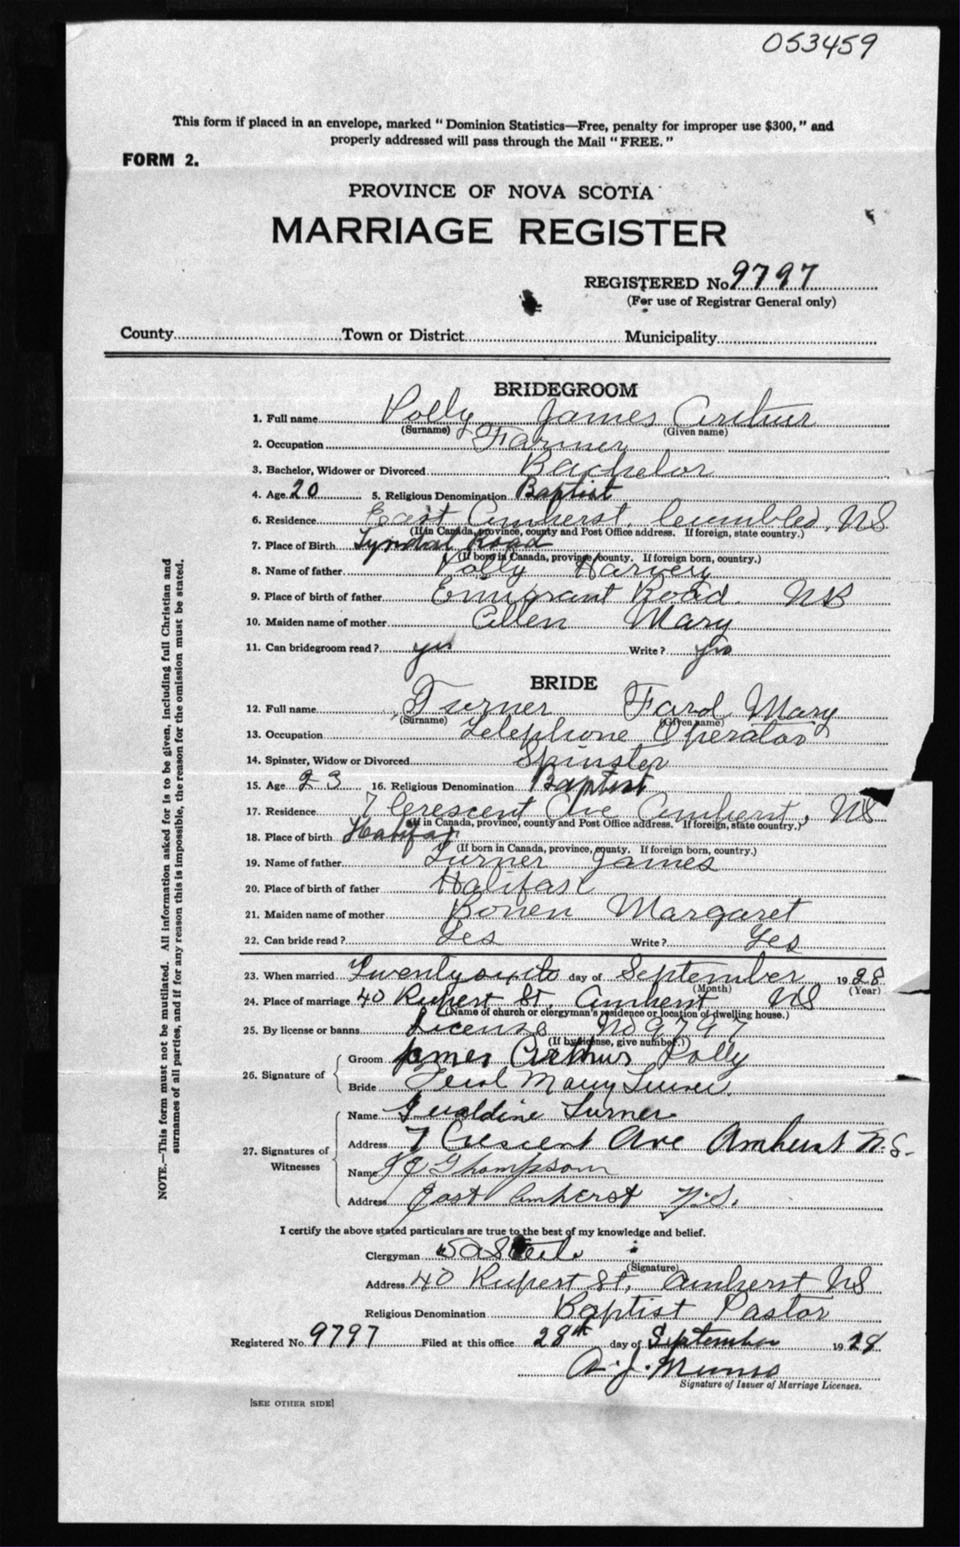 053459
This form if placed in an envelope, marked " Dominion Statistics—Free, penalty for improper use $300, " and
properly addressed will pass through the Mail " FREE. "
FORM 2.
PROVINCE OF NOVA SCOTIA
MARRIAGE REGISTER
REGISTERED No 9797
(For use of Registrar General only)
County Town or District Municipality
BRIDEGROOM
1. Full name Polly James Arthur
(Surname) (Given name)
2. Occupation Farmer
3. Bachelor, Widower or Divorced Bachelor
4. Age 20 5. Religious Denomination Baptist
6. Residence East Amherst, Cumbld, NS
(If in Canada, province, county and Post Office address. If foreign, state country.)
7. Place of Birth Tyndal Road
(If born in Canada, province, county. If foreign born, country.)
8. Name of father Polly Harvey
9. Place of birth of father Emigrant Road NB
10. Maiden name of mother Allen Mary
11. Can bridegroom read? yes Write? yes
BRIDE
12. Full name Turner Mary
(Surname) (Given name)
13. Occupation Telephone Operator
14. Spinster, Widow or Divorced Spinster
15. Age 23 16. Religious Denomination Baptist
17. Residence 7 Crescent Ave Amherst, NS
(If in Canada, province, county and Post Office address. If foreign, state country.)
18. Place of birth Halifax
(If born in Canada, province, county. If foreign born, country.)
19. Name of father Turner James
20. Place of birth of father Halifax
21. Maiden name of mother Margaret
22. Can bride read? Yes Write? Yes
23. When married day of September 1928
(Month) (Year)
24. Place of marriage 40 Rupert St, Amherst NS
(Name of church or clergyman's residence or location of dwelling house.)
25. By license or banns License No 9797
(If by license, give number.)
26. Signature of
Groom James Arthur Polly
Bride Mary Turner
27. Signatures of Witnesses
Name Geraldine Turner
Address 7 Crescent Ave Amherst N.S.
Name Thompson
Address East Amherst N.S.
I certify the above stated particulars are true to the best of my knowledge and belief.
Clergyman
(Signature)
Address 40 Rupert St, Amherst NS
Religious Denomination Baptist Pastor
Registered No. 9797 Filed at this office 28th day of September 1928
A. J.
Signature of Issuer of Marriage Licenses.
[SEE OTHER SIDE]
NOTE.—This form must not be mutilated. All information asked for is to be given, including full Christian and
surnames of all parties, and if for any reason this is impossible, the reason for the omission must be stated.